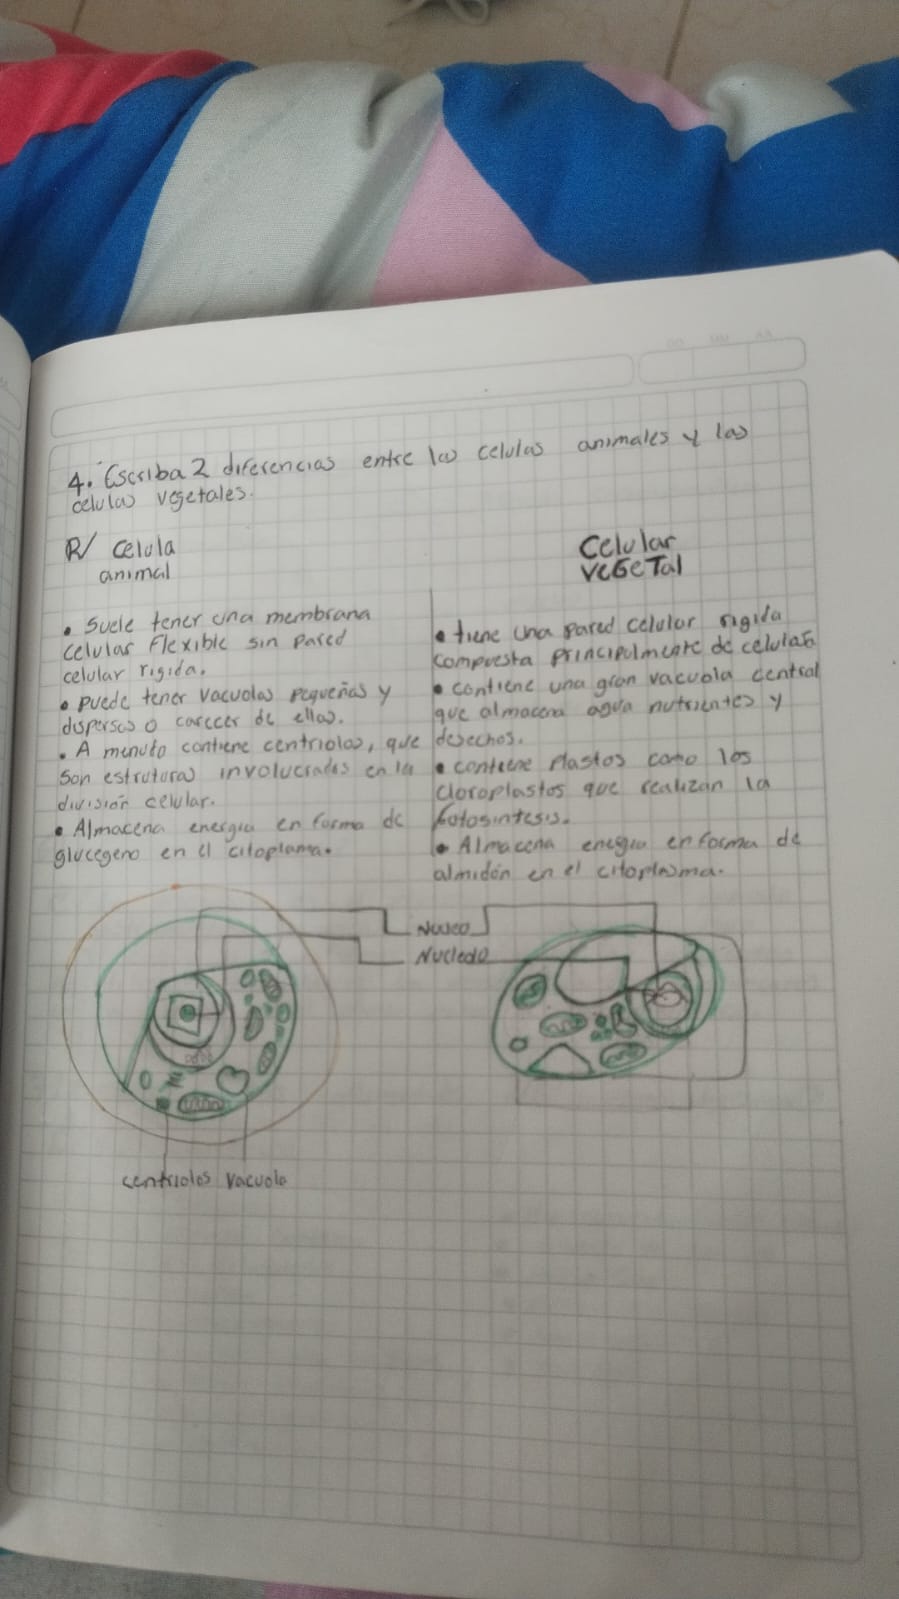 4. Escriba 2 diferencias entre las celulas animales y las
celulas vegetales.
R/ celula
animal
• Suele tener una membrana
celular Flexible sin pared
celular rigida.
• puede tener vacuolas pequeñas y
dispersas o carecer de ellas.
• A menuto contiene centriolos, que
son estruturas involucradas en la
división celular.
• Almacena energia en forma de
glucegeno en el citoplama.
Celular
veGeTal
• tiene una pared celular rigida
compuesta principalmente de celulasa
• contiene una gran vacuola central
que almacena agua nutrientes y
desechos.
• contiene plastos como los
cloroplastos que realizan la
fotosintesis.
• Almacena energia en forma de
almidón en el citoplasma.
Nucleo
centriolos vacuola